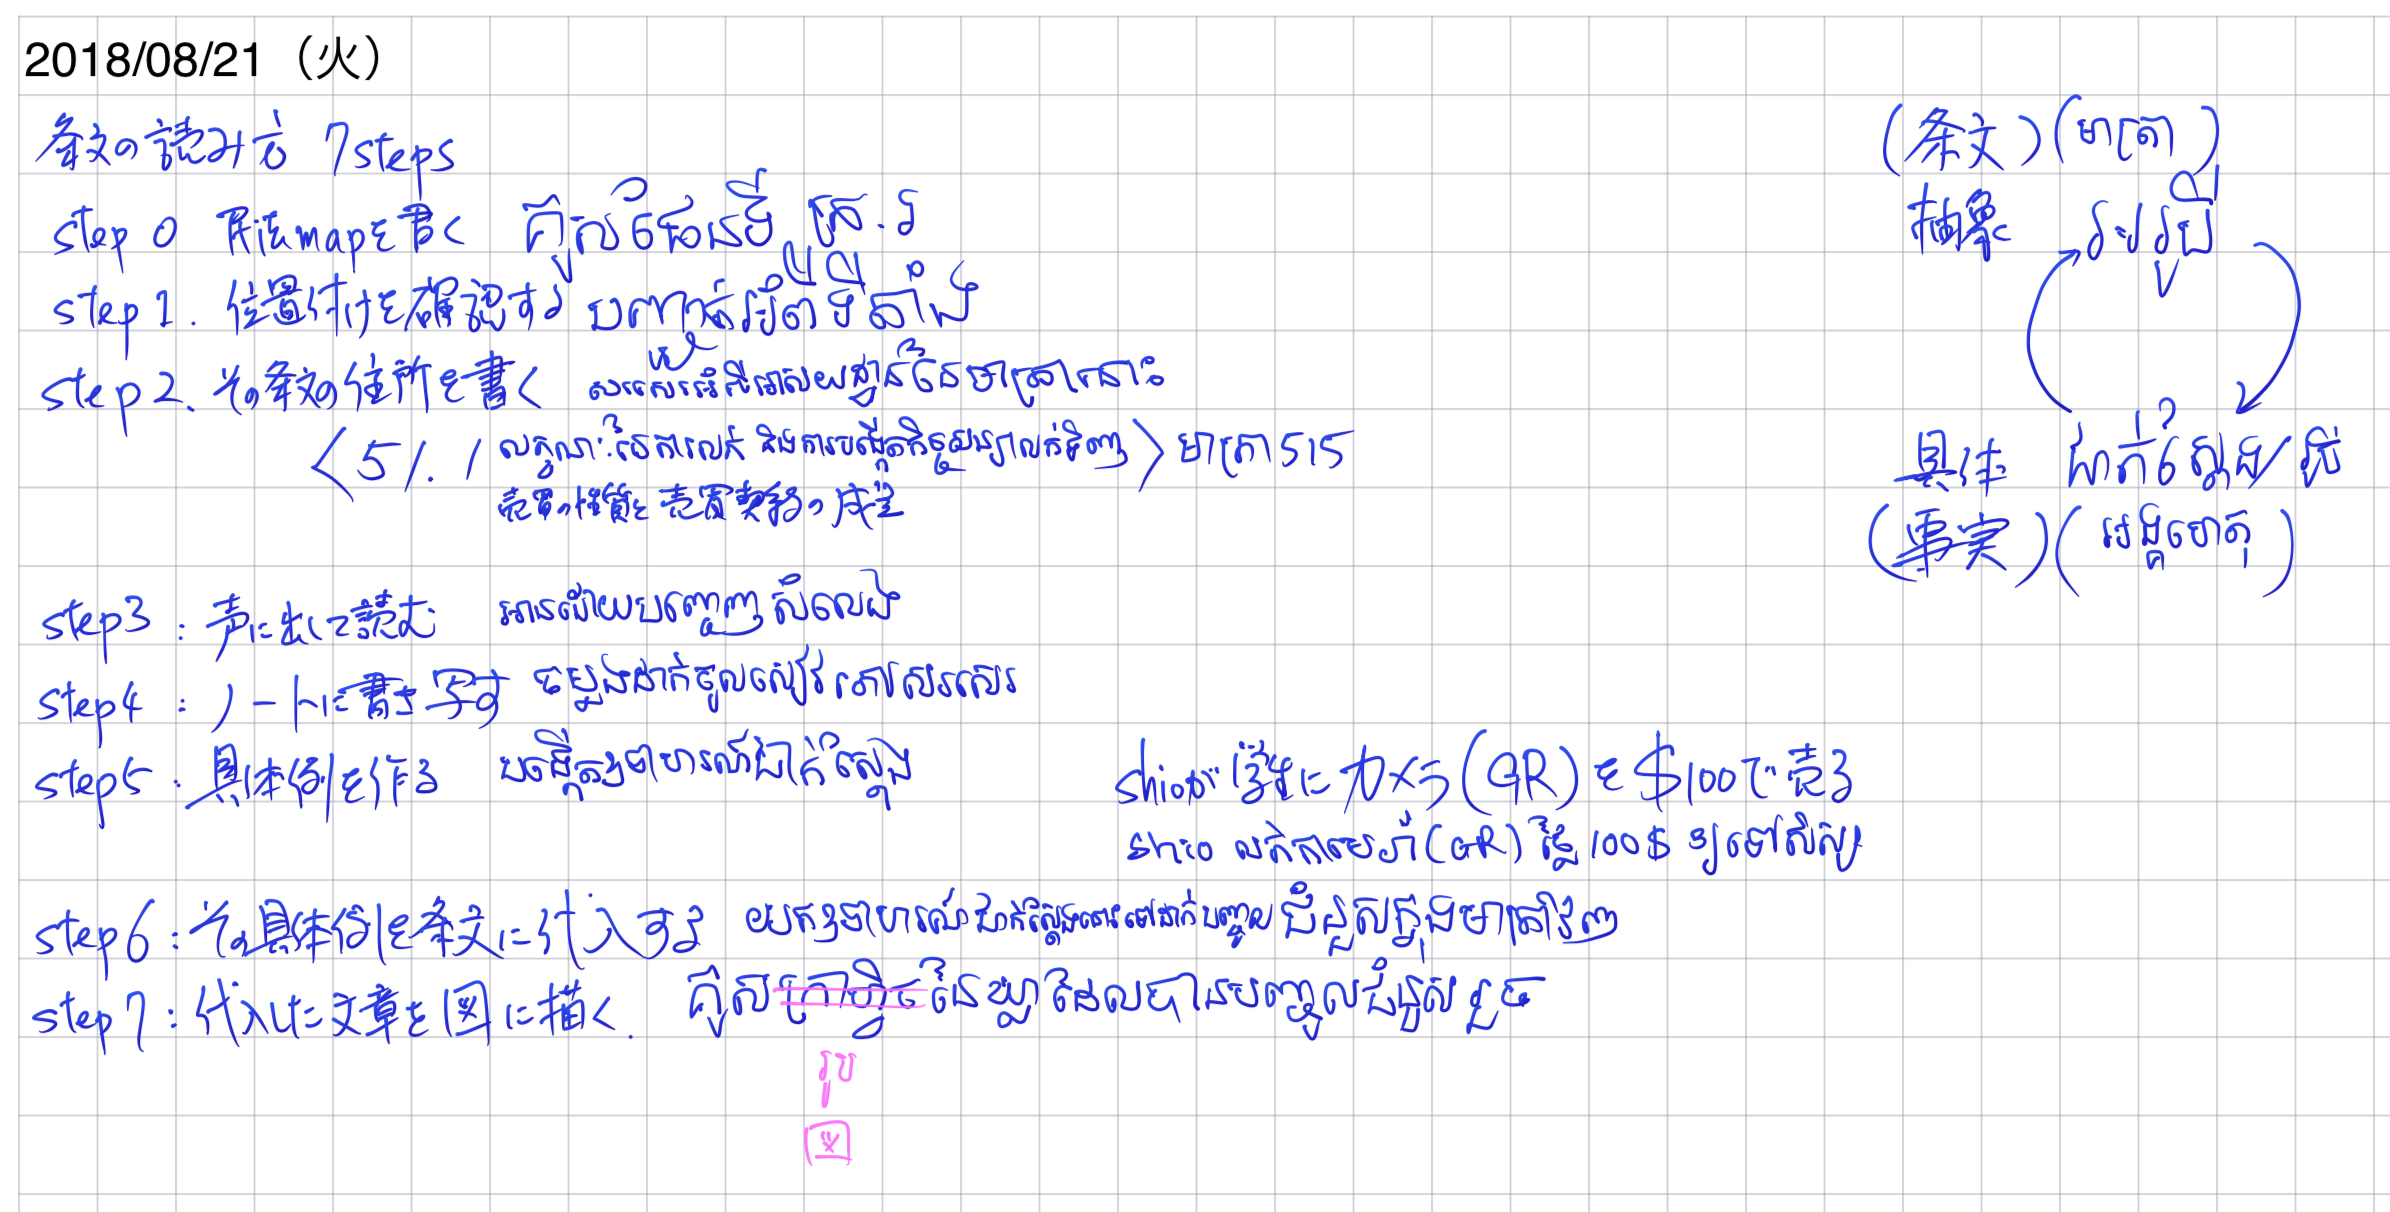 2018/08/21（火）
条文の読み方 7steps
step 0 民法mapを書く គូសផែនទី ក្រ.រ
step 1. 位置付けを確認する បញ្ជាក់អំពីទីតាំង
step 2. その条文の住所を書く សរសេរអំពីអាសយដ្ឋាននៃមាត្រានោះ
〈5/. / លក្ខណៈនៃការលក់ និងការបង្កើតកិច្ចសន្យាលក់ទិញ〉មាត្រា 515
売買の性質と売買契約の成立
step3 : 声に出して読む អានដោយបញ្ចេញសំលេង
step4 : ノートに書き写す ចម្លងដាក់ចូលសៀវភៅសរសេរ
step5 : 具体例を作る បង្កើតឧទាហរណ៍ជាក់ស្តែង
shioが 学生に カメラ(GR)を$100で売る
shio លក់កាមេរ៉ា(GR) ថ្លៃ 100$ ឲ្យទៅសិស្ស
step6 : その具体例を条文に代入する យកឧទាហរណ៍ជាក់ស្តែងនោះទៅដាក់បញ្ចូលជំនួសក្នុងមាត្រាវិញ
step7 : 代入した文章を図に描く. គូសក្រាហ្វិចនៃឃ្លាដែលបានបញ្ចូលជំនួសរួច
រូប
図
(条文) (មាត្រា)
抽象 អរូបី
具体 ជាក់ស្តែង/រូប
(事実) (អង្គហេតុ)